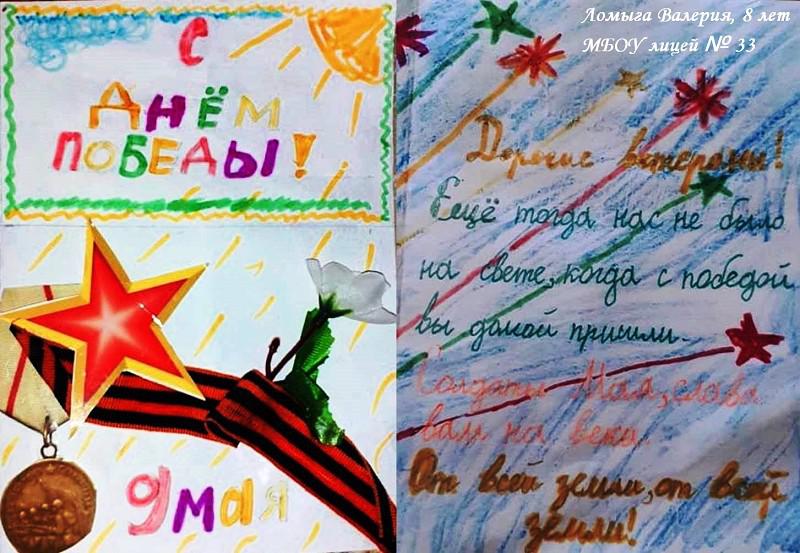 С
ДНЁМ
ПОБЕДЫ!
9 мая
Ломыга Валерия, 8 лет
МБОУ лицей № 33
Дорогие ветераны!
Ещё тогда нас не было
на свете, когда с победой
вы домой пришли.
Солдаты Мая, слава
вам на века.
От всей земли, от всей
земли!